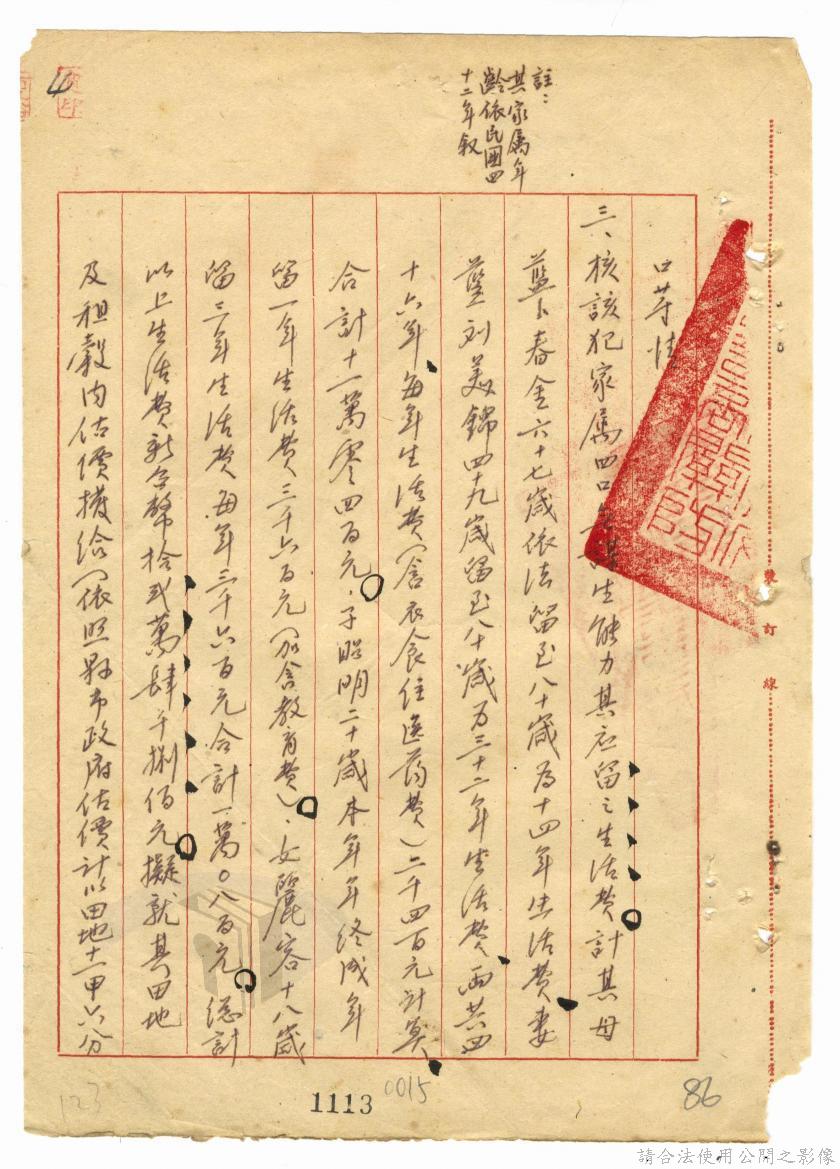 註：
其家屬年
齡依民國四
十二年叙
口等情
三、核該犯家屬四口無謀生能力其应留之生活費計其母
藍卜春金六十七歲依法留至八十歲為十四年生活費妻
藍刘美錦四十九歲留至八十歲为三十二年生活費两共四
十六年每年生活費（含衣食住医葯費）二千四百元計算
合計十一萬零四百元，子昭明二十歲本年年終成年
留一年生活費三千六百元（加含教育費），女麗容十八歲
留三年生活費每年三千六百元合計一萬〇八百元總計
以上生活費新台幣拾弍萬肆千捌佰元擬就其田地
及租穀内估價撥給（依照縣市政府估價計以田地十一甲六分
裝訂線
1113
0015
86
123
4
請合法使用公開之影像